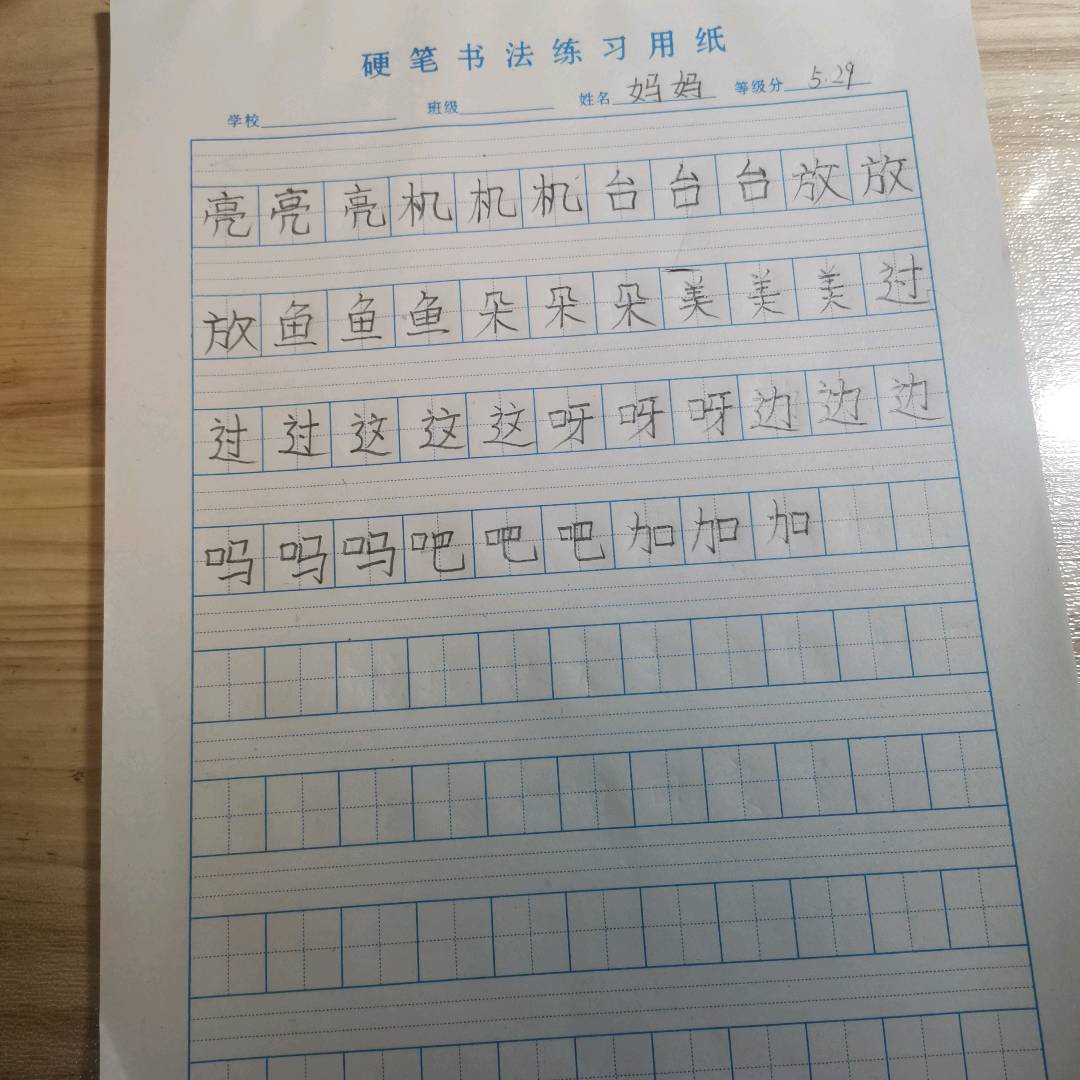 硬笔书法练习用纸
学校 班级 姓名 妈妈 等级分 5.29
亮亮亮机机机台台台放放
放鱼鱼鱼朵朵朵美美美过
过过这这这呀呀呀边边边
吗吗吗吧吧吧加加加